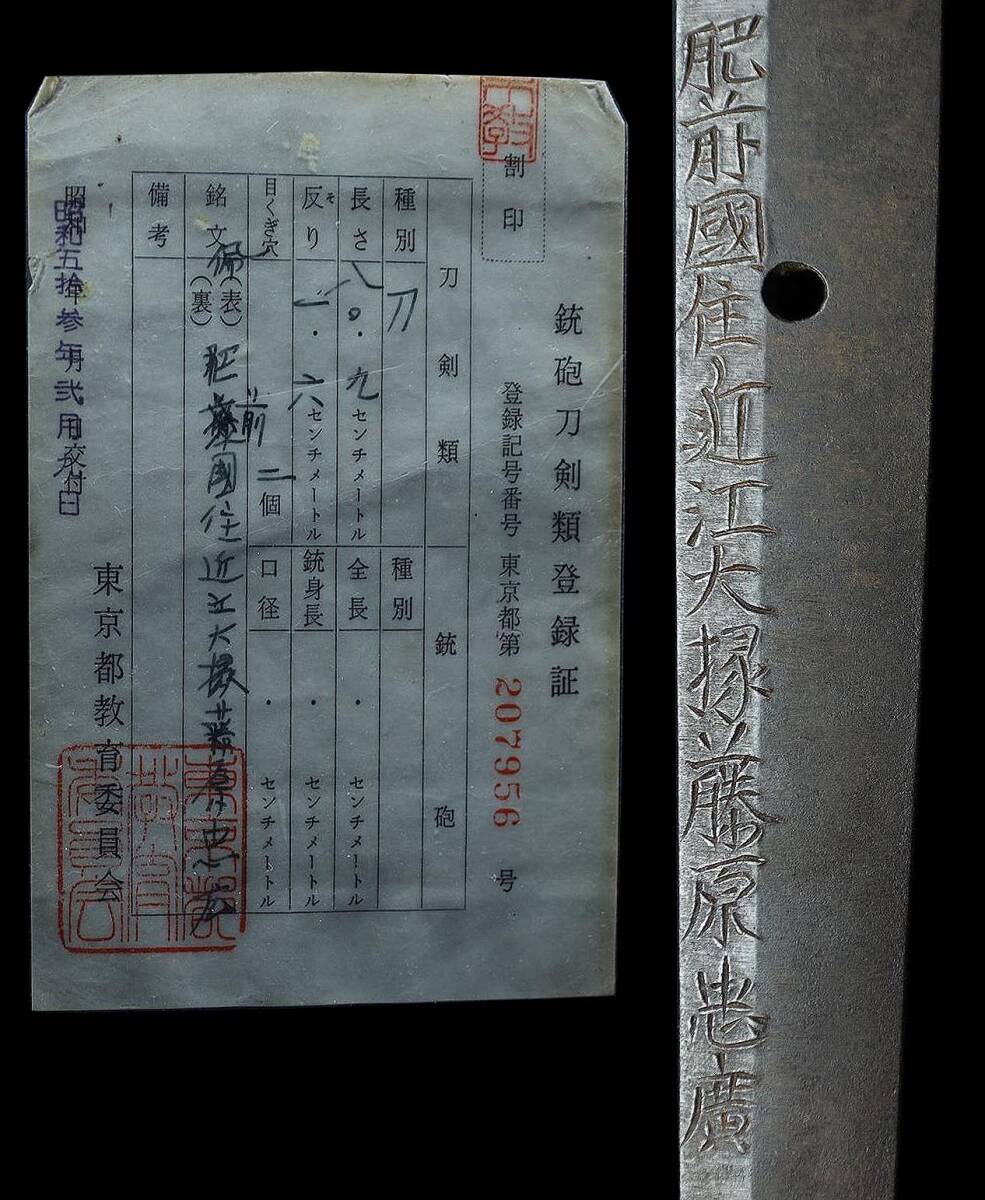 銃砲刀剣類登録証
割印
登録記号番号 東京都第 207956 号
刀剣類 銃砲
種別 刀 種別
長さ 八〇・九センチメートル 全長 ・ センチメートル
反り 一・六センチメートル 銃身長 ・ センチメートル
そ
目くぎ穴 二個 口径 ・ センチメートル
銘文 (表) (裏)
肥前國住近江大掾藤原忠広
備考
東京都教育委員会
昭和五拾参年弐月 日交付
肥前國住近江大掾藤原忠廣